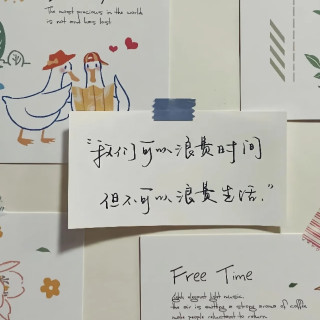 The most precious in the world
is not and has lost
"我们可以浪费时间
但不可以浪费生活."
Free Time
light elegant light music,
the air is wafting a strong aroma of coffee
make people reluctant to return